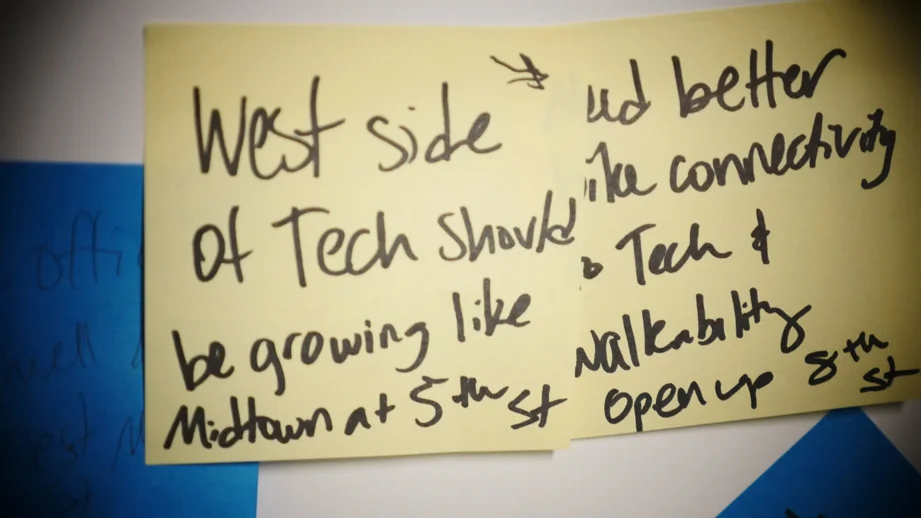 West side
of Tech should
be growing like
Midtown at 5th st
better
connectivity
Tech &
Walkability
open up 8th
st
offi